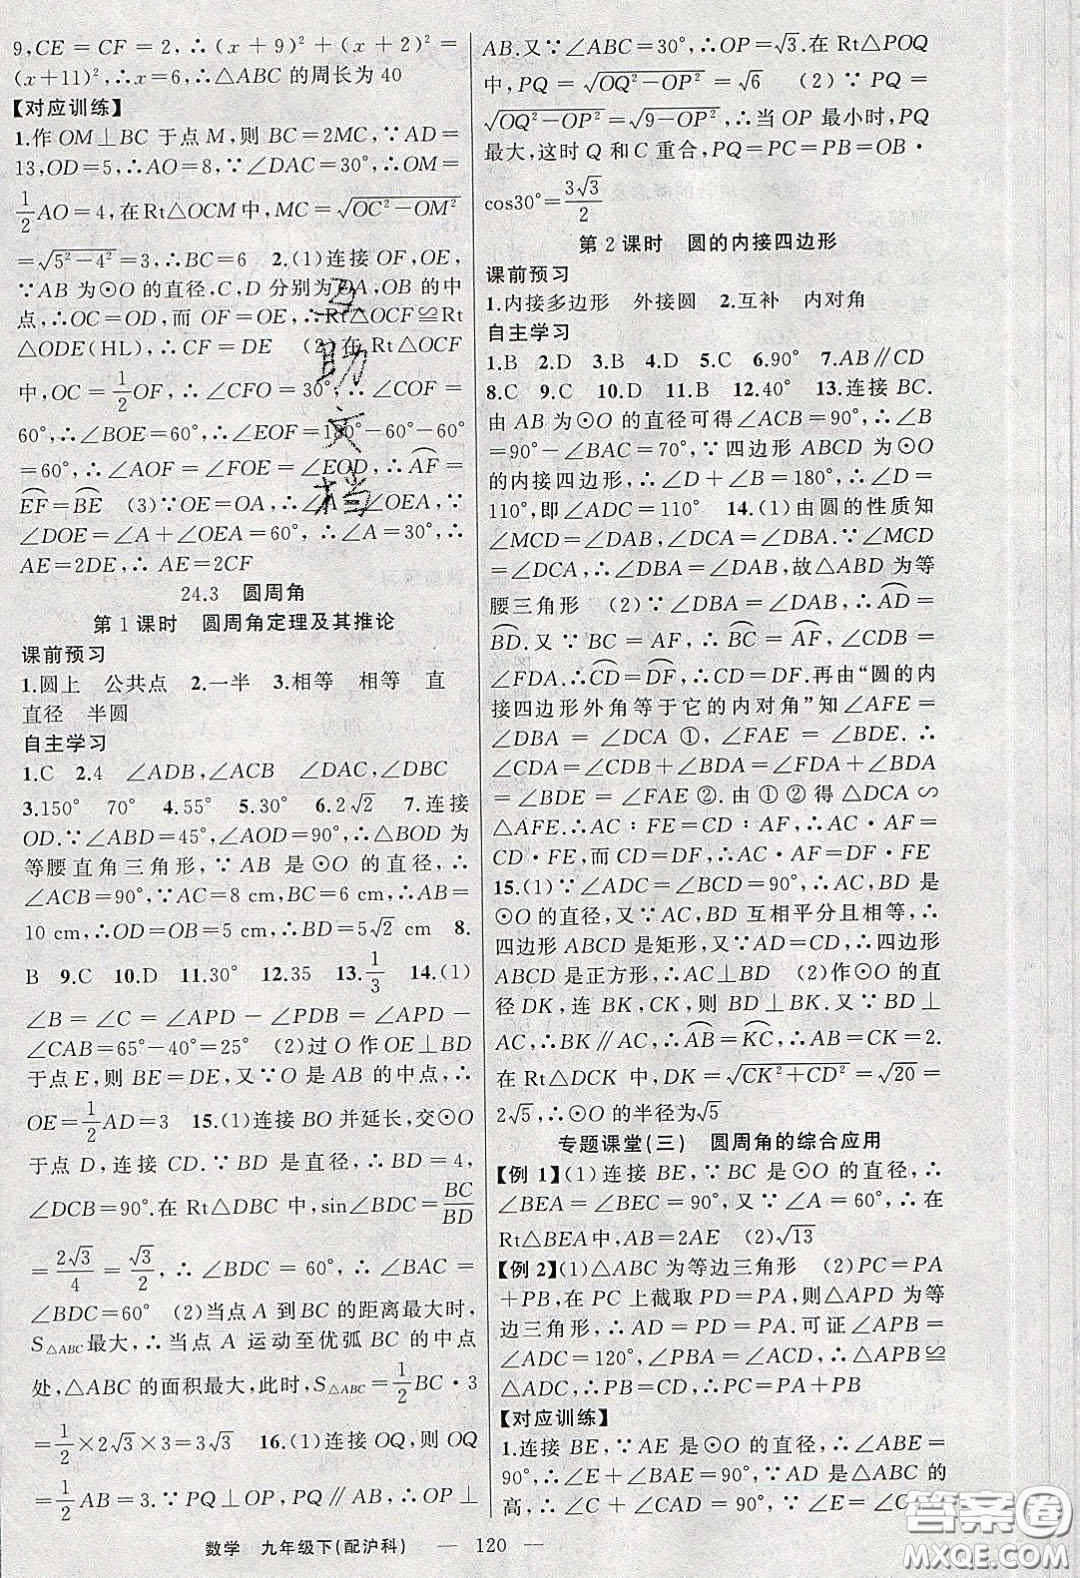 9,CE=CF=2,∴(x+9)²+(x+2)²=
(x+11)²,∴x=6,∴△ABC 的周长为 40
【对应训练】
1.作 OM⊥BC 于点 M,则 BC=2MC,∵AD=
13,OD=5,∴AO=8,∵∠DAC=30°,∴OM=
1/2 AO=4,在 Rt△OCM 中,MC=√(OC²-OM²)
=√(5²-4²)=3,∴BC=6 2.(1)连接 OF,OE,
∵AB 为⊙O 的直径,C,D 分别为 OA,OB 的中
点,∴OC=OD,而 OF=OE,∴Rt△OCF≌Rt
△ODE(HL),∴CF=DE (2)在 Rt△OCF
中,OC=1/2 OF,∴∠CFO=30°,∴∠COF=
60°,∴∠BOE=60°,∴∠EOF=180°-60°-60°
=60°,∴∠AOF=∠FOE=∠EOD,∴⌒AF=
⌒EF=⌒BE (3)∵OE=OA,∴∠A=∠OEA,∵
∠DOE=∠A+∠OEA=60°,∴∠A=30°,∴
AE=2DE,∴AE=2CF
24.3 圆周角
第 1 课时 圆周角定理及其推论
课前预习
1.圆上 公共点 2.一半 3.相等 相等 直
直径 半圆
自主学习
1.C 2.4 ∠ADB,∠ACB ∠DAC,∠DBC
3.150° 70° 4.55° 5.30° 6.2√2 7.连接
OD.∵∠ABD=45°,∠AOD=90°,∴△BOD 为
等腰直角三角形,∵AB 是⊙O 的直径,∴
∠ACB=90°,∵AC=8 cm,BC=6 cm,∴AB=
10 cm,∴OD=OB=5 cm,∴BD=5√2 cm 8.
B 9.C 10.D 11.30° 12.35 13.1/3 14.(1)
∠B=∠C=∠APD-∠PDB=∠APD-
∠CAB=65°-40°=25° (2)过 O 作 OE⊥BD
于点 E,则 BE=DE,又∵O 是 AB 的中点,∴
OE=1/2 AD=3 15.(1)连接 BO 并延长,交⊙O
于点 D,连接 CD.∵BC=2√3,BD=4,
∠DCB=90°.在 Rt△DBC 中,sin∠BDC=BC/BD
=2√3/4=√3/2,∴∠BDC=60°,∴∠BAC=
∠BDC=60° (2)当点 A 到 BC 的距离最大时,
S△ABC最大,∴当点 A 运动至优弧 BC 的中点
处,△ABC 的面积最大,此时,S△ABC=1/2 BC·3
=1/2×2√3×3=3√3 16.(1)连接 OQ,则 OQ
=1/2 AB=3.∵PQ⊥OP,PQ∥AB,∴OP⊥
AB.又∵∠ABC=30°,∴OP=√3.在 Rt△POQ
中,PQ=√(OQ²-OP²)=√6 (2)∵PQ=
√(OQ²-OP²)=√(9-OP²),∴当 OP 最小时,PQ
最大,这时 Q 和 C 重合,PQ=PC=PB=OB·
cos30°=3√3/2
第 2 课时 圆的内接四边形
课前预习
1.内接多边形 外接圆 2.互补 内对角
自主学习
1.B 2.D 3.B 4.D 5.C 6.90° 7.AB∥CD
8.C 9.C 10.D 11.B 12.40° 13.连接 BC.
由 AB 为⊙O 的直径可得∠ACB=90°,∴∠B
=90°-∠BAC=70°,∵四边形 ABCD 为⊙O
的内接四边形,∴∠D+∠B=180°,∴∠D=
110°,即∠ADC=110° 14.(1)由圆的性质知
∠MCD=∠DAB,∠DCA=∠DBA,而∠MCD
=∠DCA,∴∠DBA=∠DAB,故△ABD 为等
腰三角形 (2)∵∠DBA=∠DAB,∴⌒AD=
⌒BD.又∵BC=AF,∴⌒BC=⌒AF,∠CDB=
∠FDA.∴⌒CD=⌒DF,∴CD=DF.再由“圆的内
接四边形外角等于它的内对角”知∠AFE=
∠DBA=∠DCA ①,∠FAE=∠BDE.∴
∠CDA=∠CDB+∠BDA=∠FDA+∠BDA=
∠BDE=∠FAE ②.由①②得△DCA∽
△AFE.∴AC∶FE=CD∶AF,∴AC·AF=
CD·FE,而 CD=DF,∴AC·AF=DF·FE
15.(1)∵∠ADC=∠BCD=90°,∴AC,BD 是
⊙O 的直径,又∵AC,BD 互相平分且相等,∴
四边形 ABCD 是矩形,又∵AD=CD,∴四边形
ABCD 是正方形,∴AC⊥BD (2)作⊙O 的直
径 DK,连 BK,CK,则 BD⊥BK.又∵BD⊥
AC,∴BK∥AC,∴⌒AB=⌒KC,∴AB=CK=2.
在 Rt△DCK 中,DK=√(CK²+CD²)=√20=
2√5,∴⊙O 的半径为√5
专题课堂(三) 圆周角的综合应用
【例 1】(1)连接 BE,∵BC 是⊙O 的直径,∴
∠BEA=∠BEC=90°,又∵∠A=60°,∴在
Rt△BEA中,AB=2AE (2)√13
【例 2】(1)△ABC 为等边三角形 (2)PC=PA
+PB,在 PC 上截取 PD=PA,则△APD 为等
边三角形,∴AD=PD=PA.可证∠APB=
∠ADC=120°,∠ABP=∠ACP,∴△APB≌
△ADC,∴PB=CD,∴PC=PA+PB
【对应训练】
1.连接 BE,∵AE 是⊙O 的直径,∴∠ABE=
90°,∴∠E+∠BAE=90°,∵AD 是△ABC 的
高,∴∠C+∠CAD=90°,∵∠E=∠C,∴
数学 九年级下(配沪科) — 120 —
互助文档
答案圈